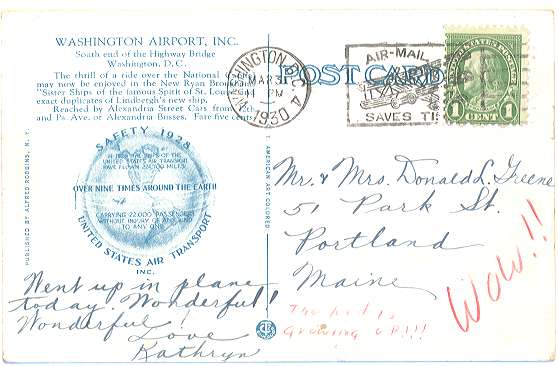 WASHINGTON AIRPORT, INC.
South end of the Highway Bridge
Washington, D.C.
The thrill of a ride over the National
may now be enjoyed in the New Ryan Brou
"Sister Ships of the famous Spirit of St. Lou
exact duplicates of Lindbergh's new ship.
Reached by Alexandria Street Cars from 12th
and Pa. Ave. or Alexandria Busses. Fare five cents
SAFETY 1928
IN 1928 THE SHIPS OF THE
UNITED STATES AIR TRANSPORT
HAVE FLOWN 226,700 MILES
OVER NINE TIMES AROUND THE EARTH
CARRYING 22,000 PASSENGERS
WITHOUT INJURY OF ANY KIND
TO ANY ONE
UNITED STATES AIR TRANSPORT
INC.
PUBLISHED BY ALFRED ROBBINS, N.Y.
Went up in plane
today. Wonderful!
Wonderful!
Love
Kathryn
AMERICAN ART COLORED
POST CARD
WASHINGTON, D.C. 4
MAR 31
PM
1930
AIR-MAIL
SAVES TI
1 CENT 1
Mr. & Mrs. Donald L. Greene
51 Park St.
Portland
Maine
The kid is
growing up!!!
Wow!!